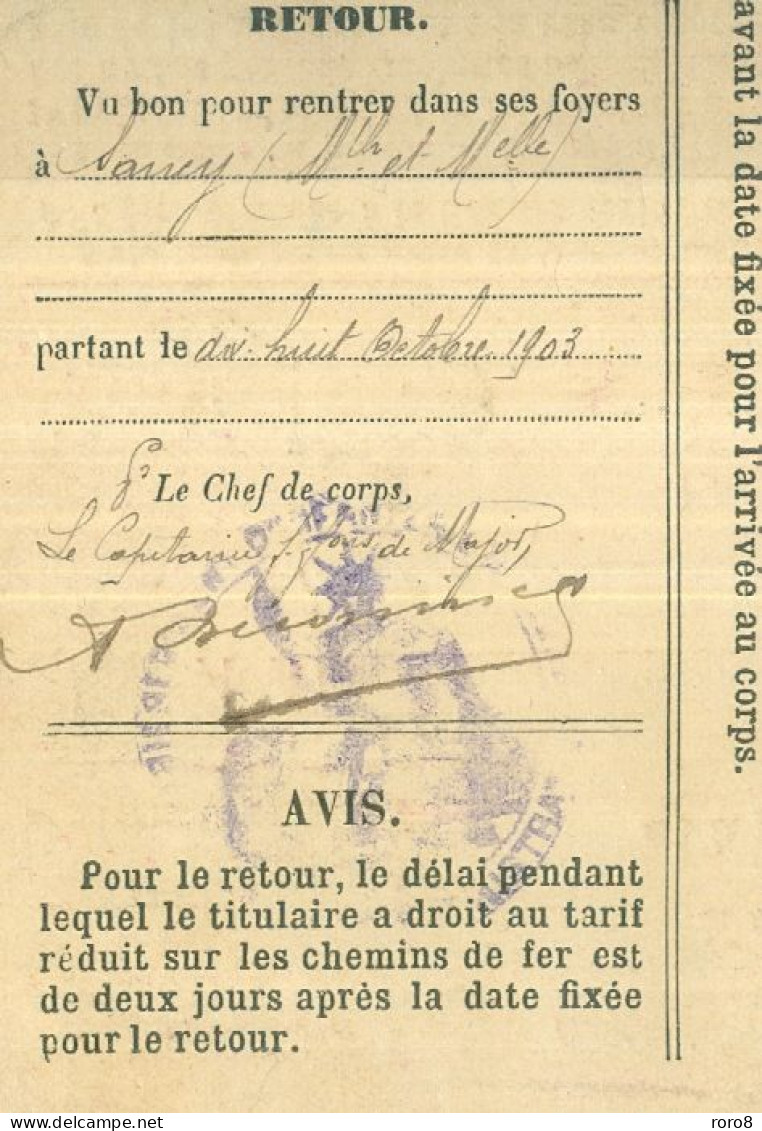 RETOUR.
Vu bon pour rentrer dans ses foyers
à Sancy (Mthe et Melle)
partant le dix-huit Octobre 1903
Le Chef de corps,
Le Capitaine f. fons de Major,
AVIS.
Pour le retour, le délai pendant
lequel le titulaire a droit au tarif
réduit sur les chemins de fer est
de deux jours après la date fixée
pour le retour.
avant la date fixée pour l'arrivée au corps.
delcampe.net
roro8